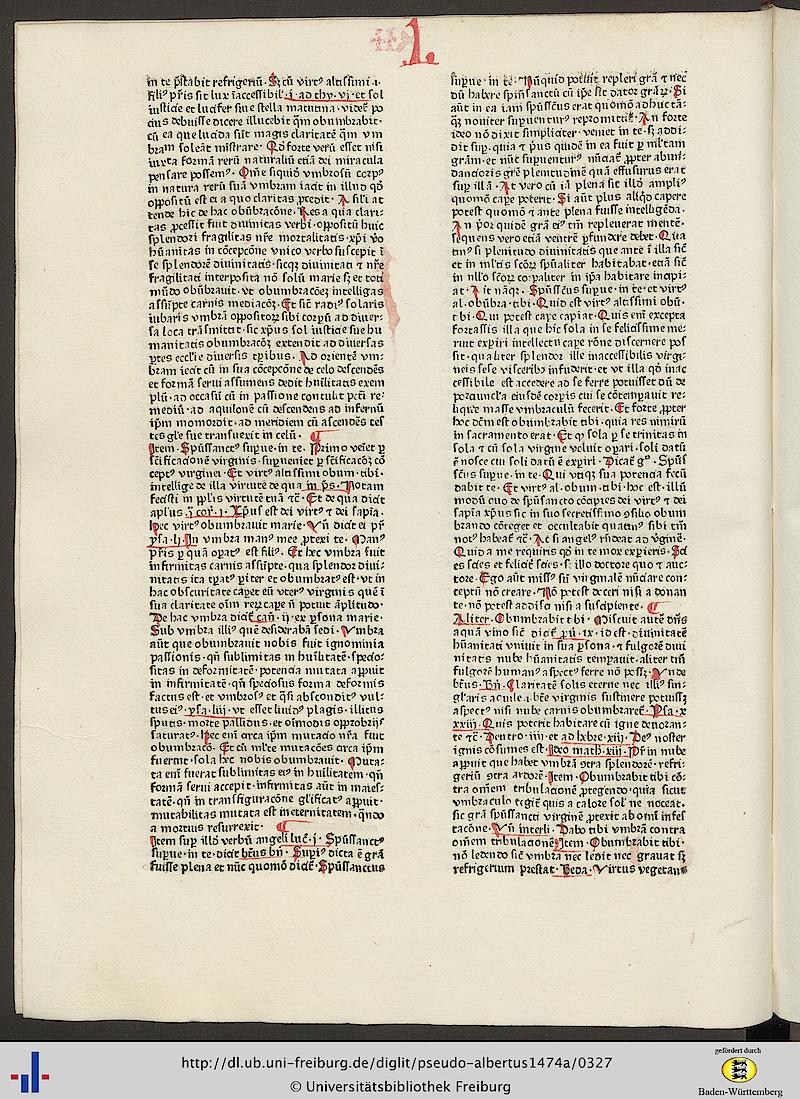 L
in te p̄stabit refrigeriū · Sꝫ cū virtꝰ altissimi ·i·
filiꝰ pr̄is sit lux īaccessibilꝰ ·i· ad thy · vj · et sol
iusticie et lucifer siue stella matutina · videt᷑ po
cius debuisse dicere illucebit q̄m obumbrabit ·
cū ea que lucida sūt magis claritatē q̄m vm
bram soleāt mīstrare · Qd̄ forte verū esset nisi
iuxta formā rerū naturaliū etiā dei miracula
pensare possemꝰ · Om̄e siquid vmbrosū corpꝰ
in natura rerū suā vmbram iacit in illud qd̄
oppositū est ei a quo claritas ꝓcedit · A sil'i at
tende hic de hac obūbracōne · Res a qua clari
tas ꝓcessit fuit diuinitas verbi · oppositū huic
splendori fragilitas nr̄e mortalitatis · xp̄i v̄o
hūanitas in cōcepcōne vnico verbo suscepit ī
se splendorē diuinitatis · sicqꝫ diuinitati ⁊ nr̄e
fragilitati interposita nō solū marie sꝫ et toti
mūdo obūbrauit · vt obumbracōeꝫ intelligas
assūpte carnis mediacōꝫ · Et sic radiꝰ solaris
iubaris vmbrā oppositoꝝ sibi corpū ad diuer-
sa loca trāsmittit · sic xp̄us sol iusticie sue hu
manitatis obumbracōꝫ extendit ad diuersas
ꝑtes eccl'ie diuersis tꝑibus · Ad orientē vm-
bram iecit cū in sua cōcepcōne de celo descendēs
et formā serui assumens dedit hūilitatis exem
plū · ad occasū cū in passione contulit pct̄i re-
mediū · ad aquilonē cū descendens ad infernū
ip̄m momordit · ad meridiem cū ascendēs tes
tes gl'e sue transuexit in celū ·
Item · Spūssanctꝰ suꝑue · in te · Primo veiet ꝑ
sc̄ificacōnē virginis · suꝑueniet ꝑ sc̄ificacōꝫ cō
ceptꝰ virginei · Et virtꝰ altissimi obum · tibi ·
intellige de illa virtute de qua in p̄s · Notam
fecisti in ppl'is virtutē tuā ⁊c̄ · Et de qua dicit
apl'us · j · cor · j · Xp̄us est dei virtꝰ ⁊ dei sapīa ·
Hec virtꝰ obumbrauit marie · Vn̄ dicit ei pr̄
ysa · lj · In vmbra manꝰ mee ꝓtexi te · Manꝰ
pr̄is ꝑ quā oꝑatꝰ est filiꝰ · Et hec vmbra fuit
infirmitas carnis assūpte · qua splendor diui-
nitatis ita tꝑatꝰ ꝑiter et obumbratꝰ est · vt in
hac obscuritate caperet eū vterꝰ virginis que ī
sua claritate oīm reꝝ capē nō potuit āplitudo ·
De hac vmbra dicit᷑ can̄ · ij · ex ꝑsona marie ·
Sub vmbra illiꝰ quē desiderabā sedi · Vmbra
aūt que obumbrauit nobis fuit ignominia
passionis · qn̄ sublimitas in hūilitatē · specio-
sitas in deformitatē · potencia mutata apꝑuit
in infirmitatē · qn̄ speciosus forma deformis
factus est · et vmbrosꝰ et q̄si absconditꝰ vul-
tus eiꝰ · ysa · liij · vt esset liuidꝰ plagis · illitus
sputis · morte pallidus · et oīmodis opprobrijs
saturatꝰ · Hec em̄ circa ip̄m mutacio nr̄a fuit
obumbracō · Et cū ml'te mutacōes circa ip̄m
fuerint · sola hec nobis obumbrauit · Muta-
ta em̄ fuerat sublimitas eiꝰ in hūilitatem · qn̄
formā serui accepit · infirmitas aūt in maies-
tatē · qn̄ in transfiguracōne gl'ificatꝰ apꝑuit ·
mutabilitas mutata est in eternitatem · qn̄do
a mortuis resurrexit ·
Item suꝑ illo verbū angeli luc̄ · j · Spūssanctꝰ
suꝑue · in te · dicit btūs bn̄ · Supiꝰ dicta ē grā
fuisse plena et nūc quomō dicit᷑ · Spūssanctus
suꝑue · in te · Nūquid potuit repleri grā ⁊ nec
dū habere spirm̄ sanctū cū ip̄e sit dator gr̄aꝝ · Si
aūt in ea iam spūsscūs erat quomō adhuc tā-
ꝙ̄ nouiter suꝑuenturꝰ repromittit᷑ · An forte
ideo nō dixit simpliciter · veniet in te · sꝫ addi-
dit suꝑ · quia ⁊ p̄us quidē in ea fuit ꝑ ml'tam
grām · et nūc suꝑuenturꝰ nūciat᷑ ꝓpter abun-
dancioris gr̄e plenitudinē quā effusurus erat
suꝑ illā · At vero cū iā plena sit illd̄ ampliꝰ
quomō cape poterit · Si aūt plus aliqd̄ capere
potest quomō ⁊ ante plena fuisse intelligēda ·
An p̄or quidē grā eiꝰ tm̄ repleuerat mentē ·
sequens vero etiā ventrē ꝑfundere debet · Qua
tinꝰ si plenitudo diuinitatis que ante ī illa sic̄
et in ml'tis sc̄oꝝ spūaliter habitabat · etiā sic̄
in nll'o sc̄oꝝ corꝑaliter in ip̄a habitare incipi-
at · Ait nāqꝫ · Spūsscūs suꝑue · in te · et virtꝰ
al · obūbra · tibi · Quid est virtꝰ altissimi obū ·
tibi · Qui potest cape capiat · Quis em̄ excepta
fortassis illa que hic sola in se felicissime me-
ruit exꝑiri intellectu cape rōne discernere pos
sit · qualiter splendor ille inaccessibilis virgi-
neis sese visceribꝰ infuderit · et vt illa qd̄ inac
cessibile est accedere ad se ferre potuisset dū de
porciuncl'a eiusdē corꝑis cui se cōtemꝑauit re-
liqꝰ masse vmbraculū fecerit · Et forte ꝓpter
hoc dēm est obumbrabit tibi · quia res nimirū
in sacramento erat · Et ꝙ sola ꝑ se trinitas in
sola ⁊ cū sola virgine voluit oꝑari · soli datū
ē nosce cui soli datū ē exꝑiri · Dicat᷑ gͦ · Spūs
scūs suꝑue · in te · Qui vtiqꝫ sua potencia fecū
dabit te · Et virtꝰ al · obum · tibi · hoc est · illū
modū quo de spūsancto cōcipies dei virtꝰ ⁊ dei
sapīa xp̄us sic in suo secretissimo ꝯsilio obum
brando cōteget et occultabit quatinꝰ sibi tm̄
notꝰ habeat᷑ ⁊c̄ · Ac si angelꝰ rn̄deat ad v̄ginē ·
Quid a me requiris qd̄ in te mox exꝑieris · Sci
es scies et feliciter scies · s · illo doctore quo ⁊ auc-
tore · Ego aūt missꝰ sū virginalē nūciare con-
ceptū nō creare · Nō potest doceri nisi a donan
te · nō potest addisci nisi a suscipiente ·
Aliter · Obumbrabit tibi · Miscuit autē dn̄s
aquā vino sic̄ dicit᷑ ꝓū · ix · id est · diuinitatē
hūanitati vniuit in sua ꝑsona · ⁊ fulgorē diui
nitatis nube hūanitatis temꝑauit · aliter tm̄
fulgorē humanꝰ aspectꝰ ferre nō possꝫ · Vnde
bt̄us · Bn̄ · Claritatē solis eterne nec illiꝰ sin-
gl'aris acule ·i· bt̄e virginis sustinere potuissꝫ
aspectꝰ nisi nube carnis obumbraret᷑ · Ysa · x
xxiij · Quis poterit habitare cū igne deuoran-
te ⁊c̄ · Deutro · iiij · et ad hebre · xij · Deꝰ noster
ignis cōsumes est · Ideo math · xiij · Pr̄ in nube
apꝑuit que habet vmbrā ꝯtra splendorē · refri-
geriū ꝯtra ardorē · Item · Obumbrabit tibi cō-
tra om̄em tribulacionē ꝓtegendo · quia sicut
vmbraculo tegit᷑ quis a calore sol' ne noceat ·
sic grā spūssancti virginē ꝓtexit ab om̄i infes
tacōne · Vn̄ interli · Dabo tibi vmbrā contra
om̄em tribulacionē · Item · Obumbrabit tibi ·
nō ledendo sic̄ vmbra nec ledit nec grauat sꝫ
refrigerium prestat · Beda · Virtus vegetans
http://dl.ub.uni-freiburg.de/diglit/pseudo-albertus1474a/0327
© Universitätsbibliothek Freiburg
gefördert durch
Baden-Württemberg